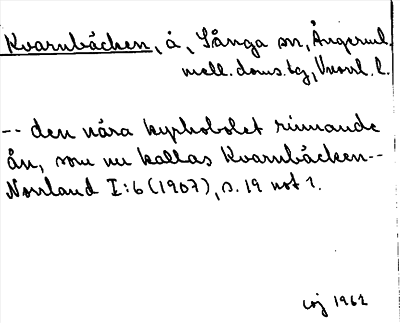 Kvarnbäcken, å, Sånga sn, Ångerml.
mell. doms.bg, Vnorrl. l.
-- den nära kyrkobolet rinnande
ån, som nu kallas Kvarnbäcken --
Norrland I:6 (1907), s. 19 not 1.
1962